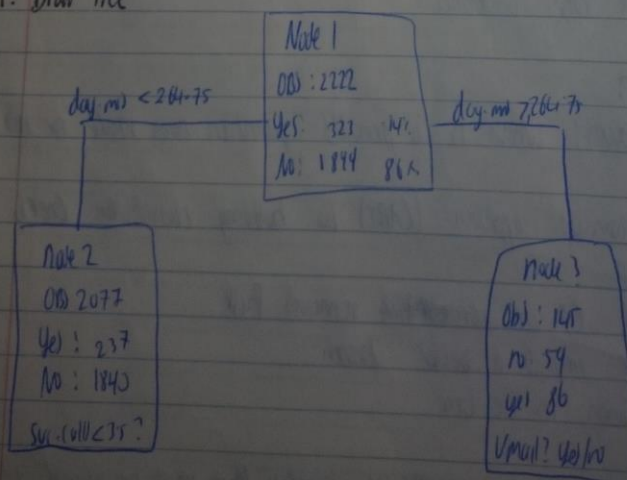 Draw tree
Node 1
OBS : 2222
Yes: 323 14%
No: 1899 86%
day.min < 264.75
day.min ≥ 264.75
Node 2
OBS 2077
Yes : 237
No : 1840
node 3
Obs : 145
no 59
yes 86
Vmail? Yes/no